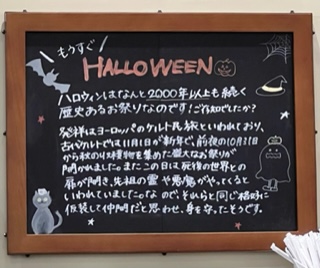 もうすぐ
HALLOWEEN
ハロウィンはなんと2000年以上も続く
歴史あるお祭りなのです!ご存知でしたか?
発祥はヨーロッパのケルト民族といわれており、
古代ケルトでは11月1日が新年で、前夜の10月31日
から秋の収穫物を集めた盛大なお祭りが
開かれました。またこの日は死後の世界との
扉が開き、先祖の霊や悪魔がやってくると
いわれていましたので、それらと同じ格好に
仮装して仲間だと思わせ、身を守ったそうです。